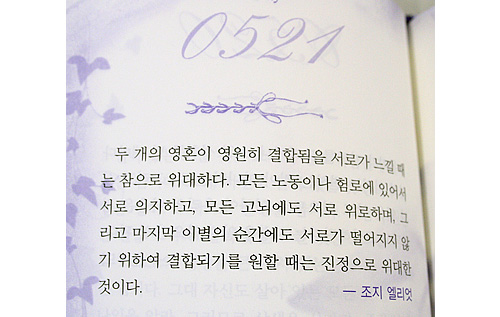 0521
두 개의 영혼이 영원히 결합됨을 서로가 느낄 때
는 참으로 위대하다. 모든 노동이나 험로에 있어서
서로 의지하고, 모든 고뇌에도 서로 위로하며, 그
리고 마지막 이별의 순간에도 서로가 떨어지지 않
기 위하여 결합되기를 원할 때는 진정으로 위대한
것이다. — 조지 엘리엇